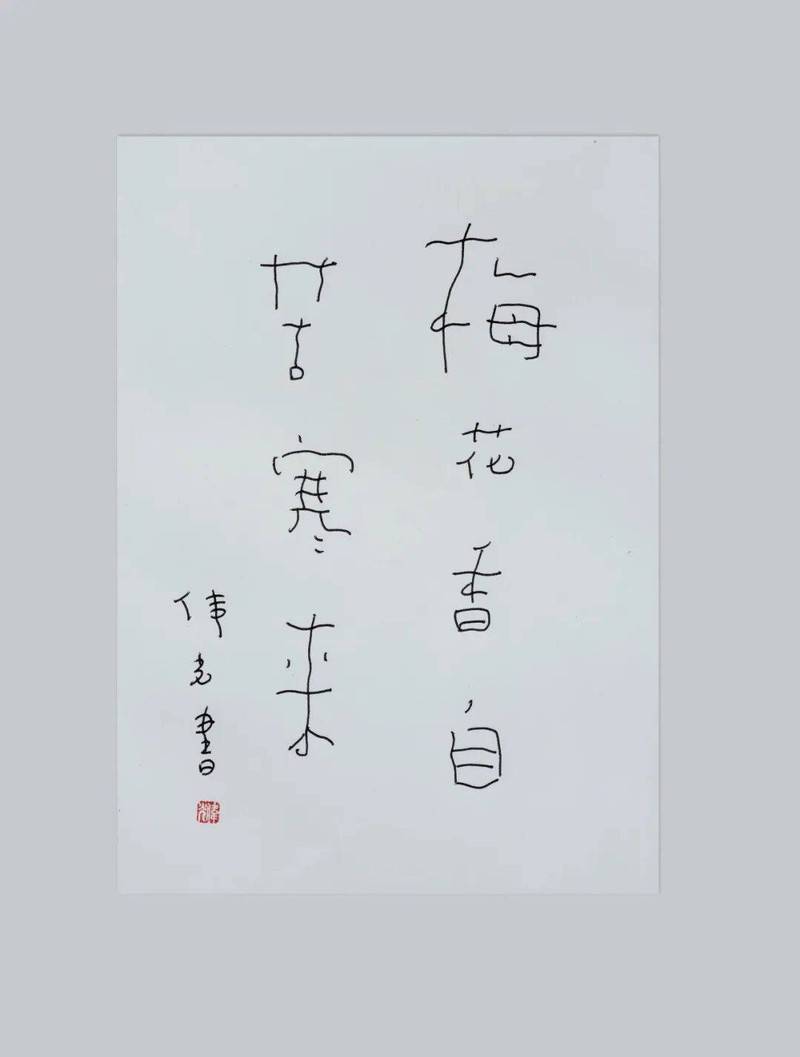 梅花香自
苦寒来
伟光書